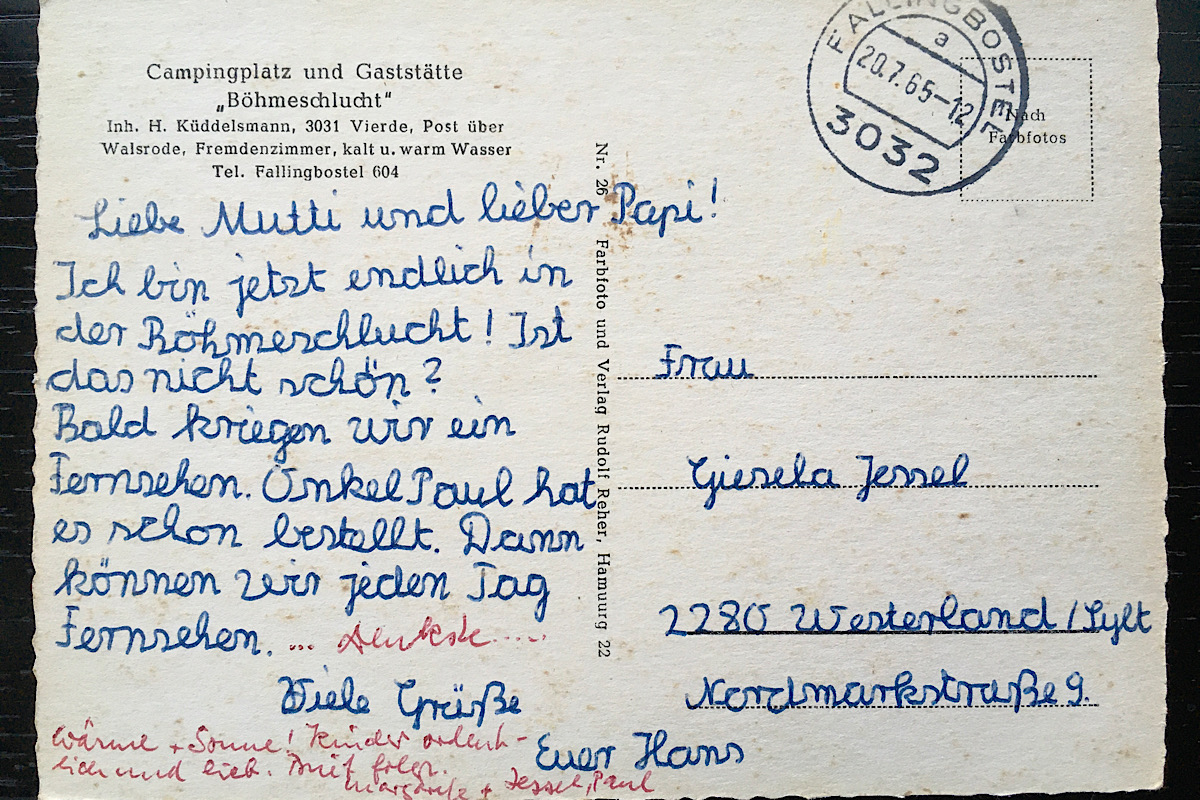 Campingplatz und Gaststätte
„Böhmeschlucht“
Inh. H. Küddelsmann, 3031 Vierde, Post über
Walsrode, Fremdenzimmer, kalt u. warm Wasser
Tel. Fallingbostel 604
FALLINGBOSTEL
a
20.7.65-12
3032
Nach
Farbfotos
Nr. 26 Farbfoto und Verlag Rudolf Reher, Hamuurg 22
Liebe Mutti und lieber Papi!
Ich bin jetzt endlich in
der Böhmeschlucht! Ist
das nicht schön?
Bald kriegen wir ein
Fernsehen. Onkel Paul hat
es schon bestellt. Dann
können wir jeden Tag
Fernsehen. ... denkste.....
Viele Grüße
Euer Hans
Wärme + Sonne! Kinder ordent-
lich und lieb. Brief folgt.
Margarete + Jessel, Paul
Frau
Giesela Jessel
2280 Westerland / Sylt
Nordmarkstraße 9.